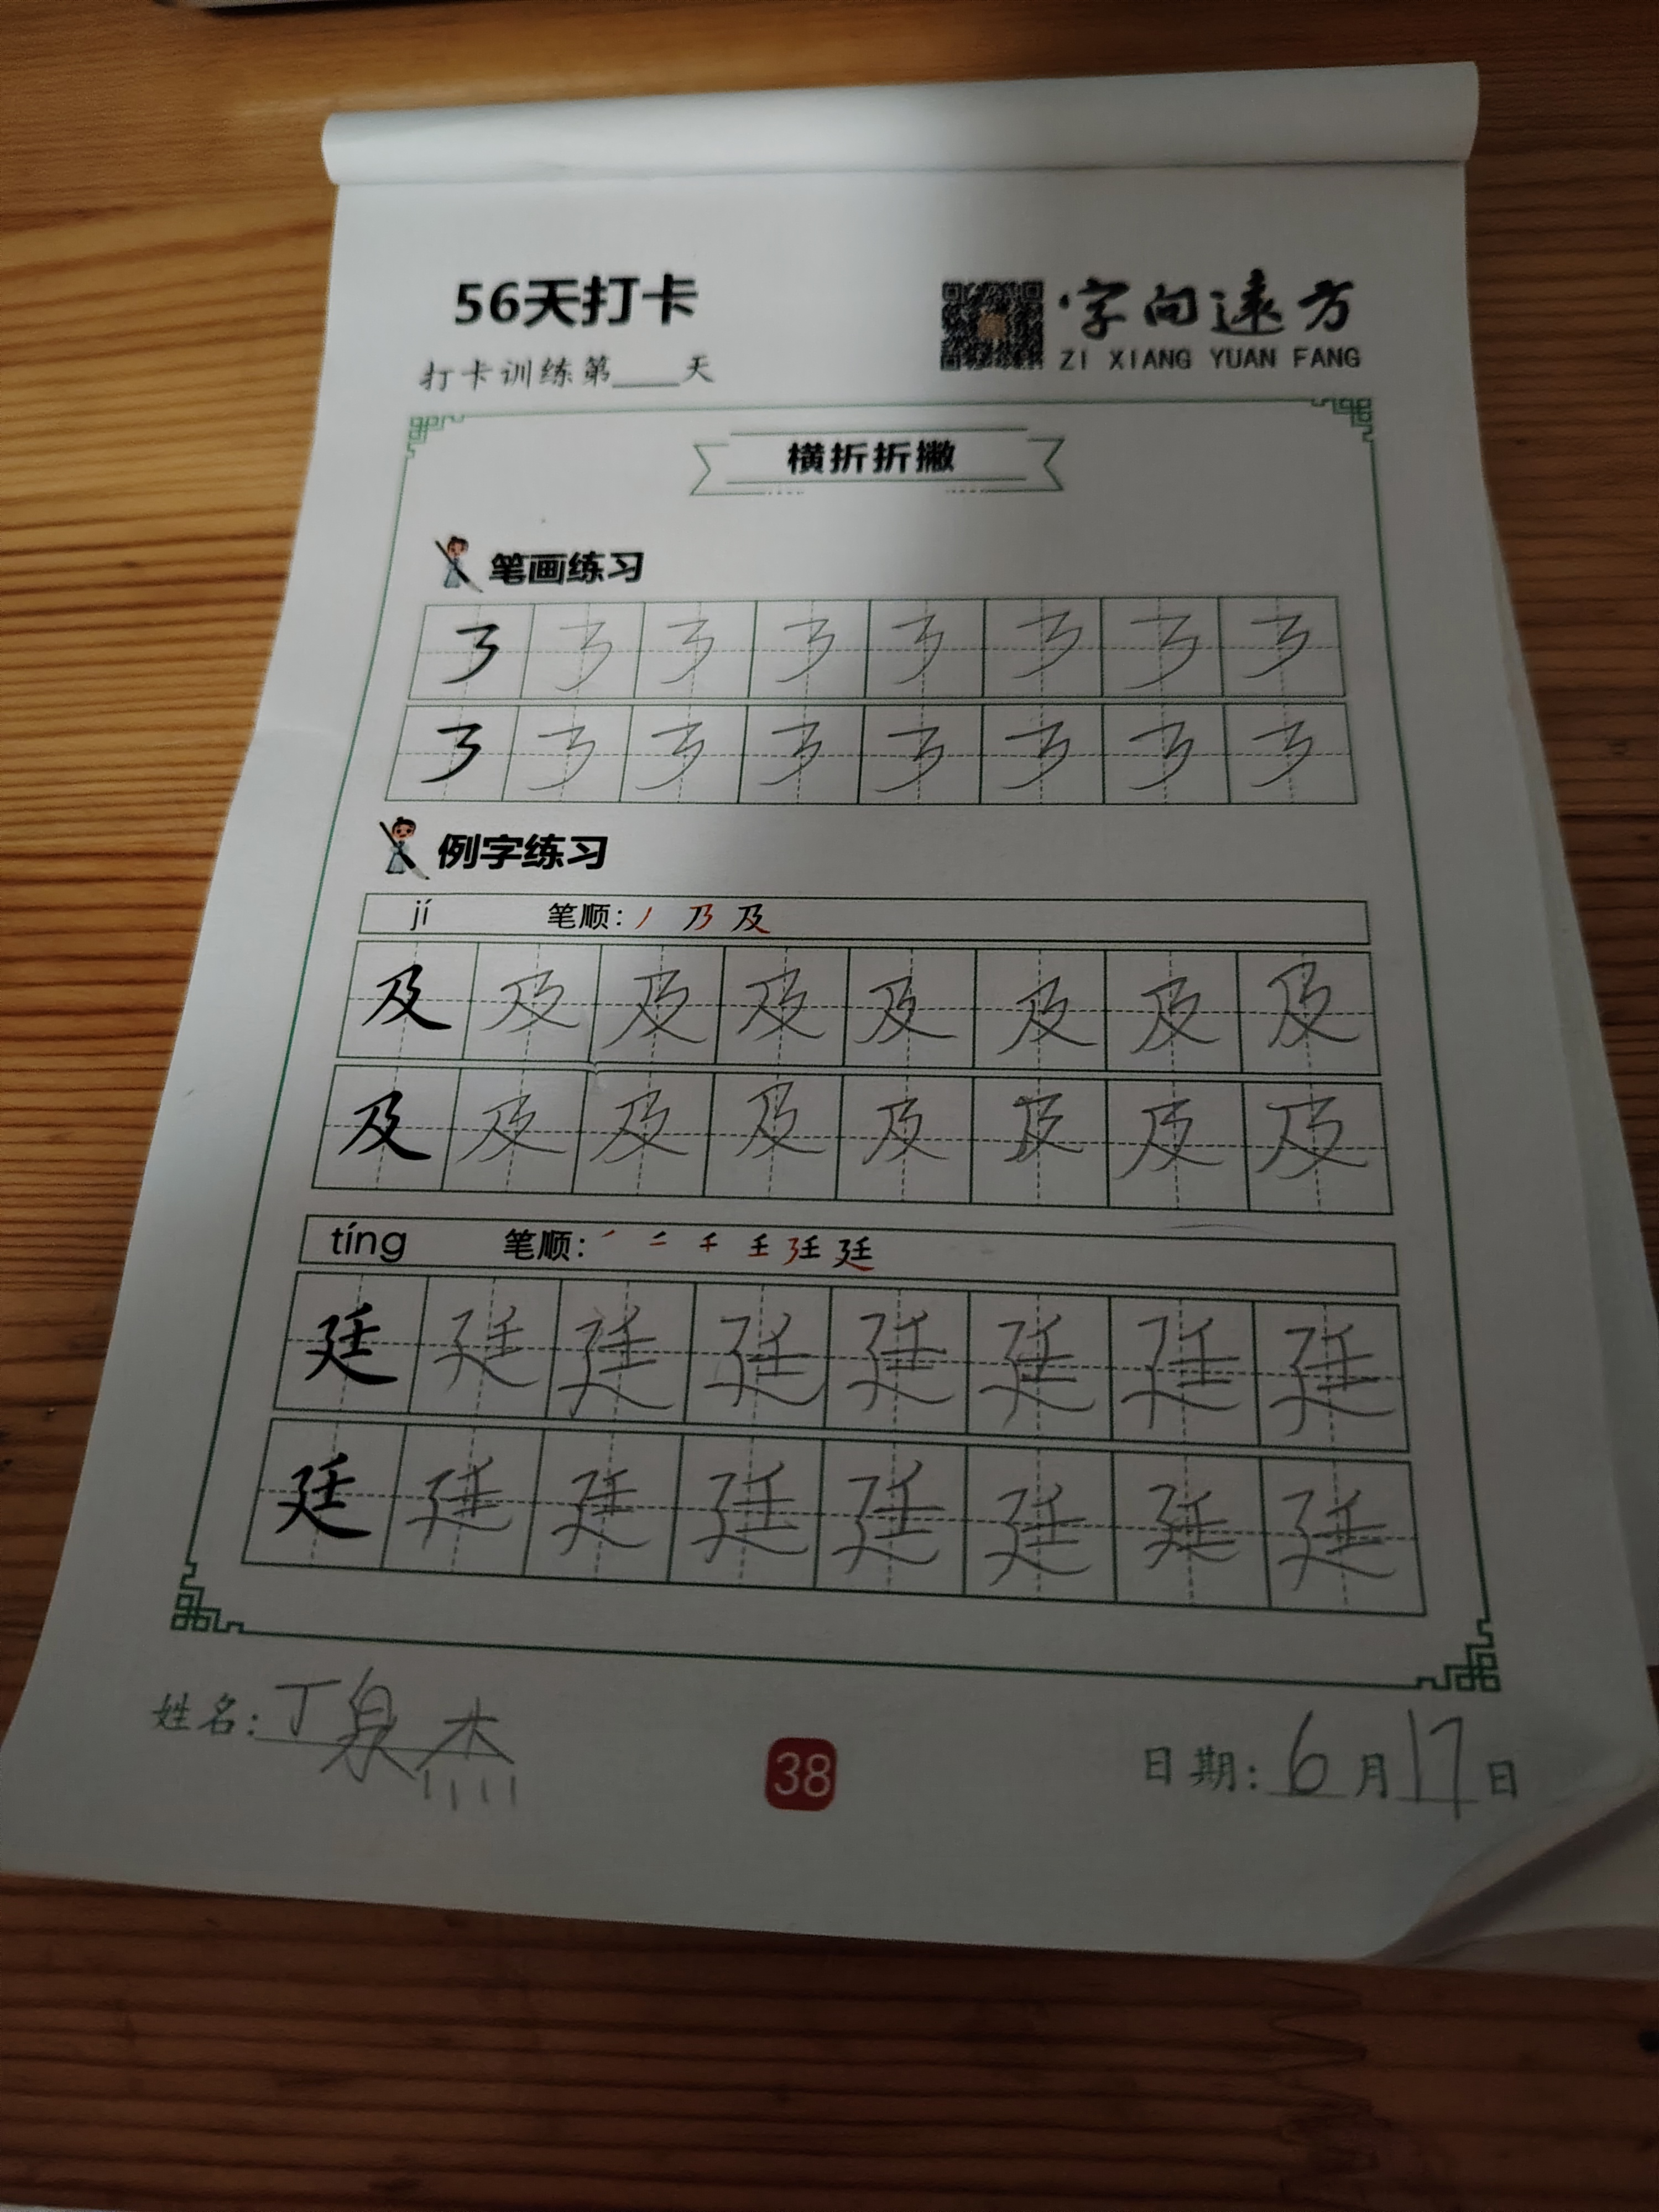 56天打卡
字向遠方
ZI XIANG YUAN FANG
打卡训练第____天
横折折撇
笔画练习
㇋ ㇋ ㇋ ㇋ ㇋ ㇋ ㇋ ㇋
㇋ ㇋ ㇋ ㇋ ㇋ ㇋ ㇋ ㇋
例字练习
jí 笔顺: 丿 乃 及
及 及 及 及 及 及 及 及
及 及 及 及 及 及 及 及
tíng 笔顺: ㇒ 二 千 壬 廷 廷
廷 廷 廷 廷 廷 廷 廷 廷
廷 廷 廷 廷 廷 廷 廷 廷
姓名:丁泉杰
38
日期:6月17日